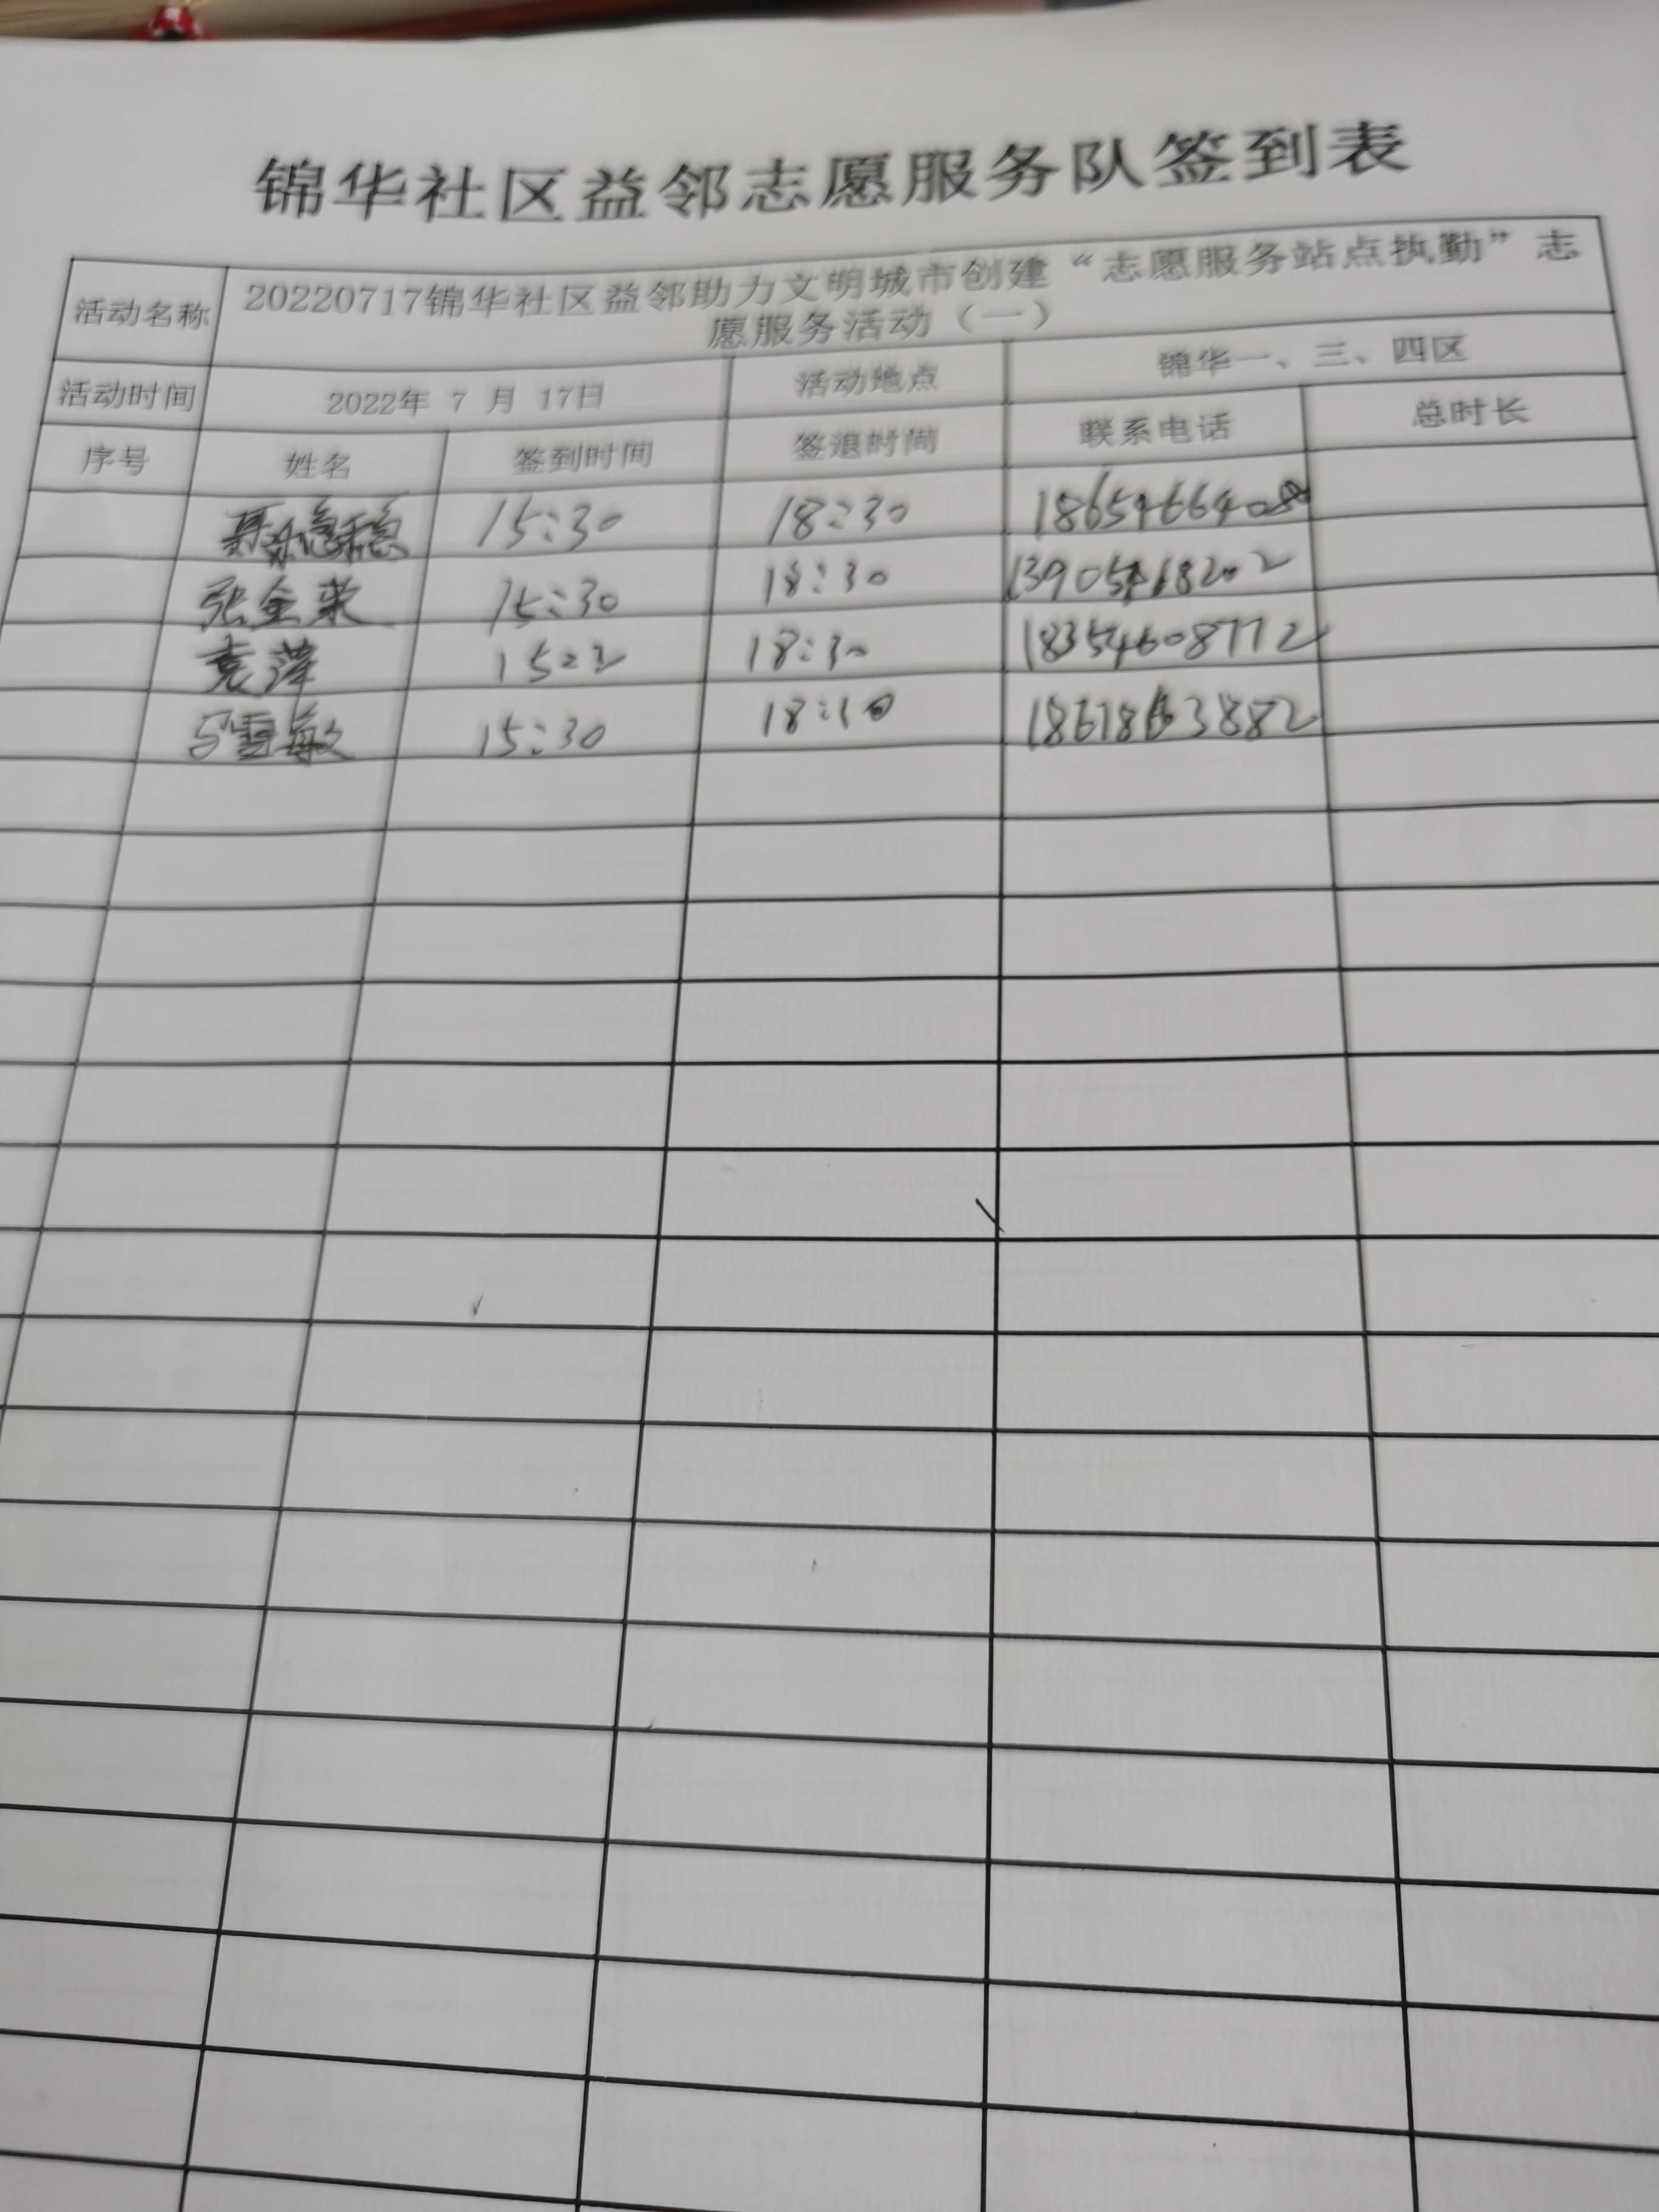 锦华社区益邻志愿服务队签到表
活动名称 20220717锦华社区益邻助力文明城市创建“志愿服务站点执勤”志
愿服务活动（一）
活动时间 2022年 7 月 17日 活动地点 锦华一、三、四区
序号 姓名 签到时间 签退时间 联系电话 总时长
15:30 18:30
张金荣 15:30 18:30
袁萍 18:30 18354608772
马雪敏 15:30 18:10